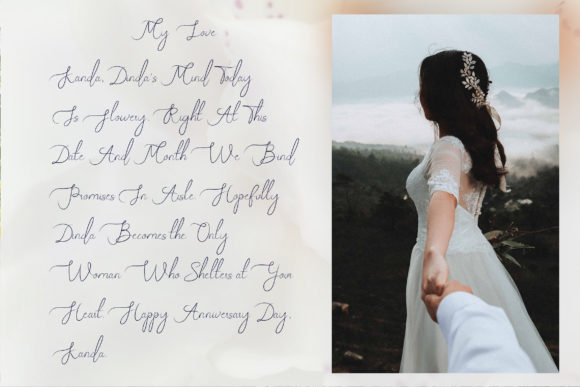 My Love
Kanda, Dinda's Mind Today
Is Flowery. Right At This
Date And Month We Bind
Promises In Aisle. Hopefully
Dinda Becomes the Only
Woman Who Shelters at Your
Heart. Happy Anniversary Day,
Kanda.